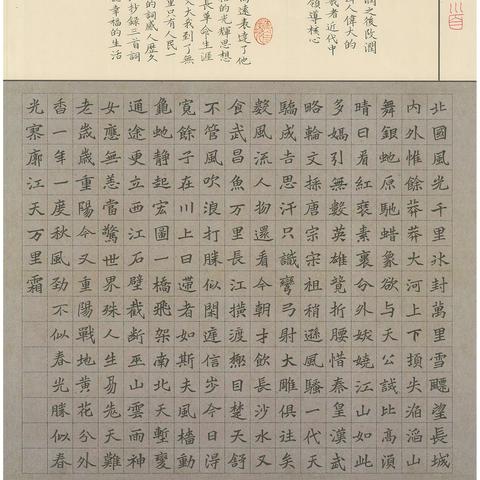 詞之後改潤
人偉大的
義者近代中
領導核心
高遠表達了他
的光輝思想
長革命生涯
里只有人民一
大我到了無
的詞感人歷久
抄錄三首詞
幸福的生活
北國風光千里冰封萬里雪飄望長城
內外惟餘莽莽大河上下頓失滔滔山
舞銀蛇原馳蜡象欲與天公試比高須
晴日看紅裝素裹分外妖嬈江山如此
多嬌引無數英雄競折腰惜秦皇漢武
略輪文採唐宗宋祖稍遜風騷一代天
驕成吉思汗只識彎弓射大雕俱往矣
數風流人物還看今朝才飲長沙水又
食武昌魚万里長江橫渡極目楚天舒
不管風吹浪打勝似閑庭信步今日得
寬餘子在川上曰逝者如斯夫風檣動
龜蛇靜起宏圖一橋飛架南北天塹變
通途更立西江石壁截斷巫山雲雨神
女應無恙當驚世界殊人生易老天難
老歲歲重陽今又重陽戰地黃花分外
香一年一度秋風勁不似春光勝似春
光寥廓江天万里霜